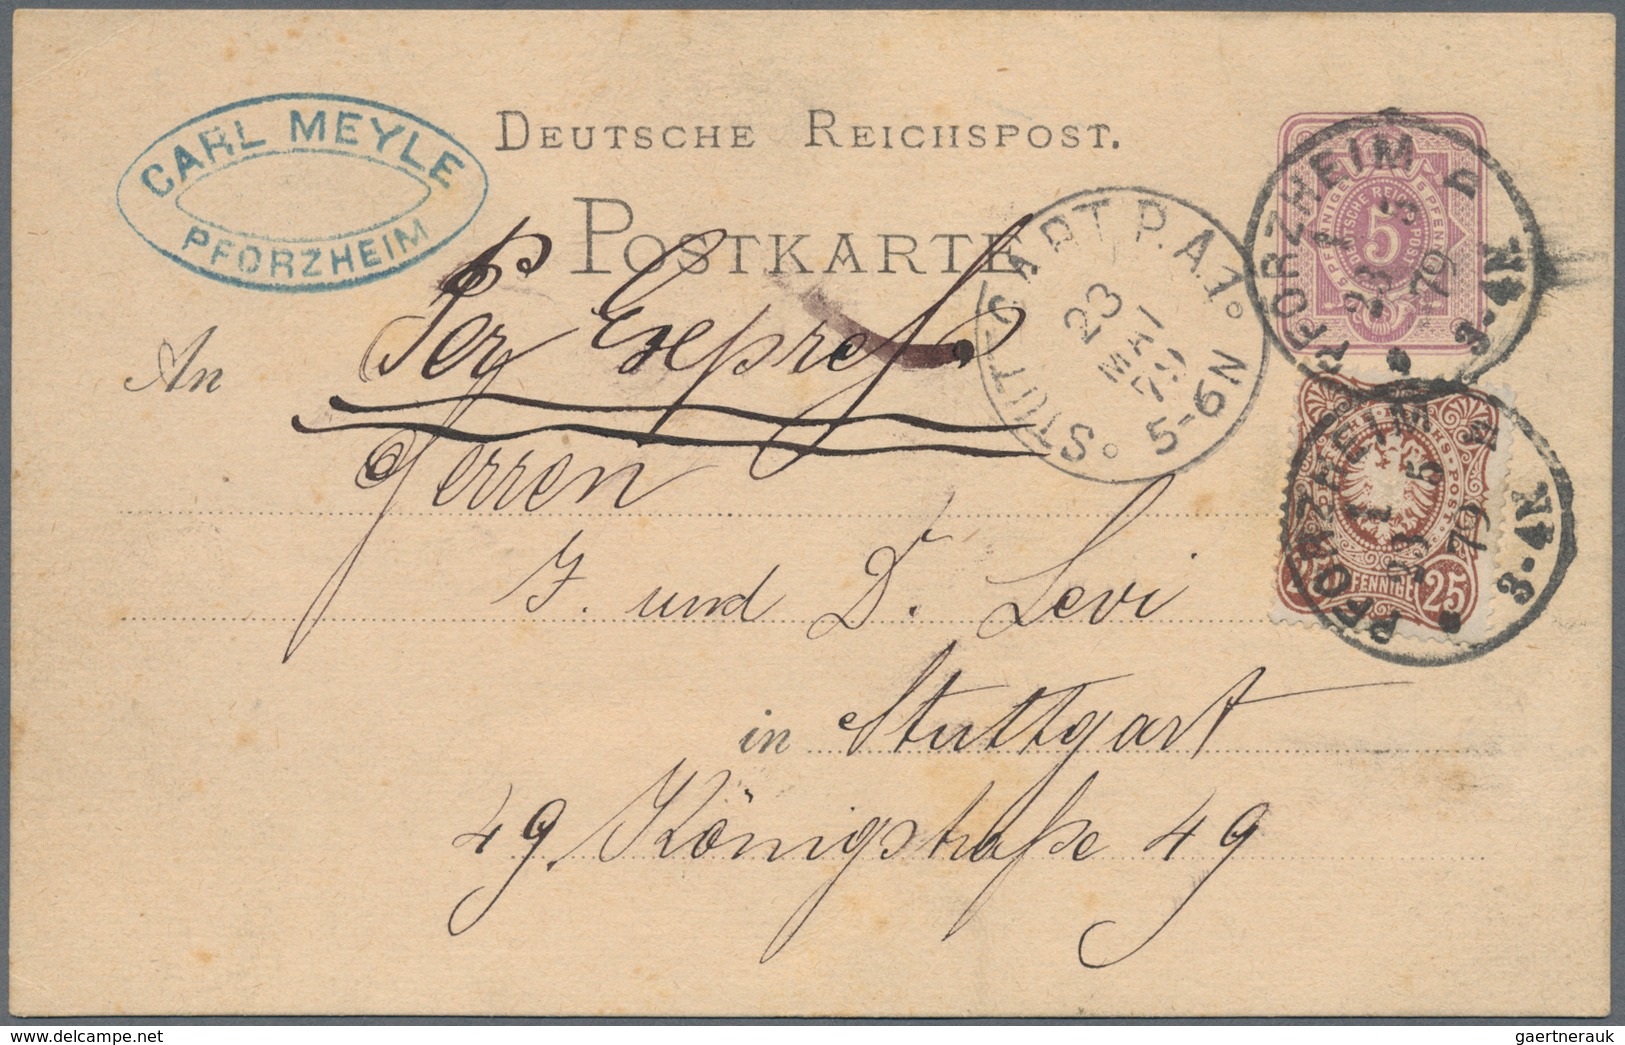 CARL MEYLE
PFORZHEIM
DEUTSCHE REICHSPOST.
POSTKARTE.
Per Expreß
An
Herren
J. und D. Levi
in Stuttgart
49. Königstraße 49
STUTTGART P.A.1.
23
MAI
79
5-6N
5 PFENNIGE
DEUTSCHE REICHS-POST
5
PFORZHEIM
23 5
79
3-4N
REICHS-POST
25 PFENNIGE 25
PFORZHEIM
23 5
79
3-4N
gaertnerauk